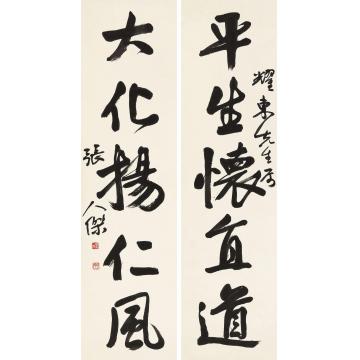 平生懷直道
耀東先生属
大化揚仁風
張人傑